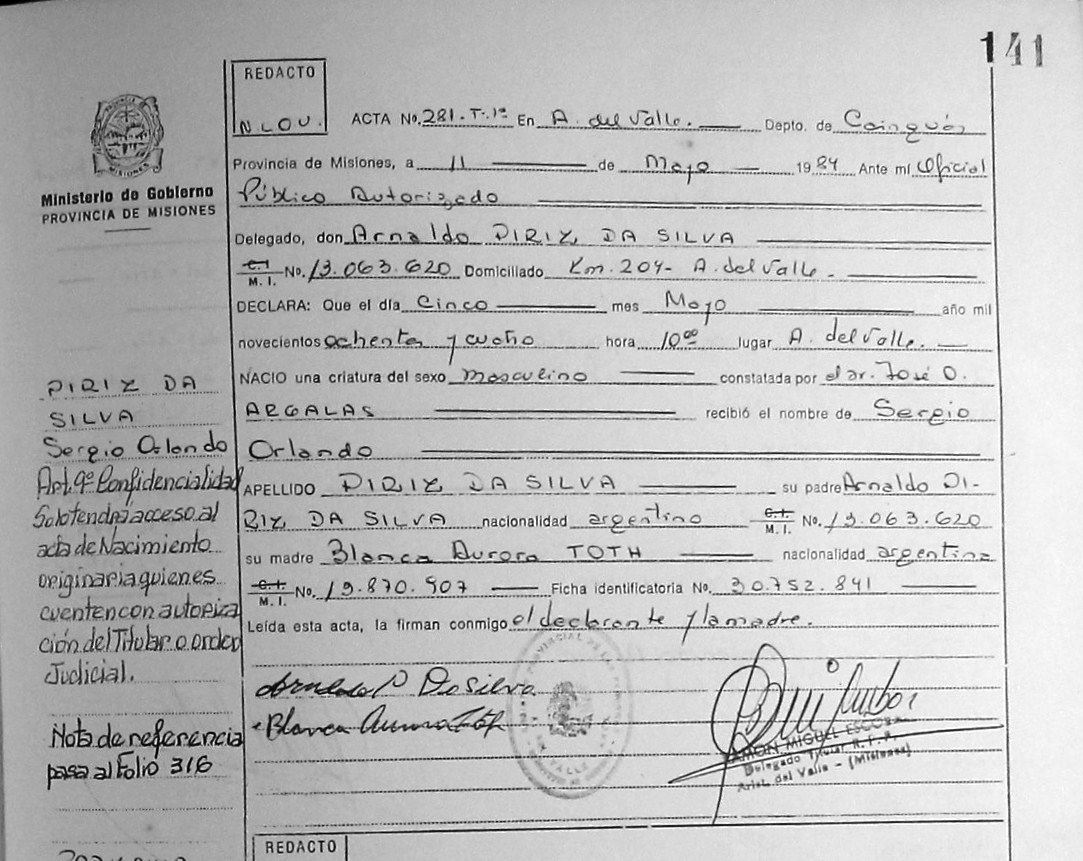 141
REDACTO
N.LOU.
Ministerio de Gobierno
PROVINCIA DE MISIONES
ACTA No. 281. T. 1º En A. del Valle. Depto. de Cainguás
Provincia de Misiones, a 11 de Mayo 1984 Ante mí Oficial
Público Autorizado
Delegado, don Arnaldo PIRIZ DA SILVA
C.I. M.I. No. 13.063.620 Domiciliado Km. 204- A. del Valle.
DECLARA: Que el día Cinco mes Mayo año mil
novecientos ochenta y cuatro hora 10⁰⁰ lugar A. del Valle.
NACIO una criatura del sexo Masculino constatada por el dr. José O.
ARGALAS recibió el nombre de Sergio
Orlando
APELLIDO PIRIZ DA SILVA su padre Arnaldo PI-
RIZ DA SILVA nacionalidad argentino C.I. M.I. No. 13.063.620
su madre Blanca Aurora TOTH nacionalidad argentina
C.I. M.I. No. 19.870.907 Ficha identificatoria No. 30.752.841
Leída esta acta, la firman conmigo el declarante y la madre.
PIRIZ DA
SILVA
Sergio Orlando
Art. 9º Confidencialidad
Solo tendrá acceso al
acta de Nacimiento
originaria quienes
cuenten con autoriza
ción del Titular o orden
Judicial.
Nota de referencia
pasa al Folio 316
Arnaldo P Da Silva
Blanca Aurora Toth
RAMON MIGUEL ESCOBAR
Delegado Titular R. P. P.
Arist. del Valle - (Misiones)
REDACTO